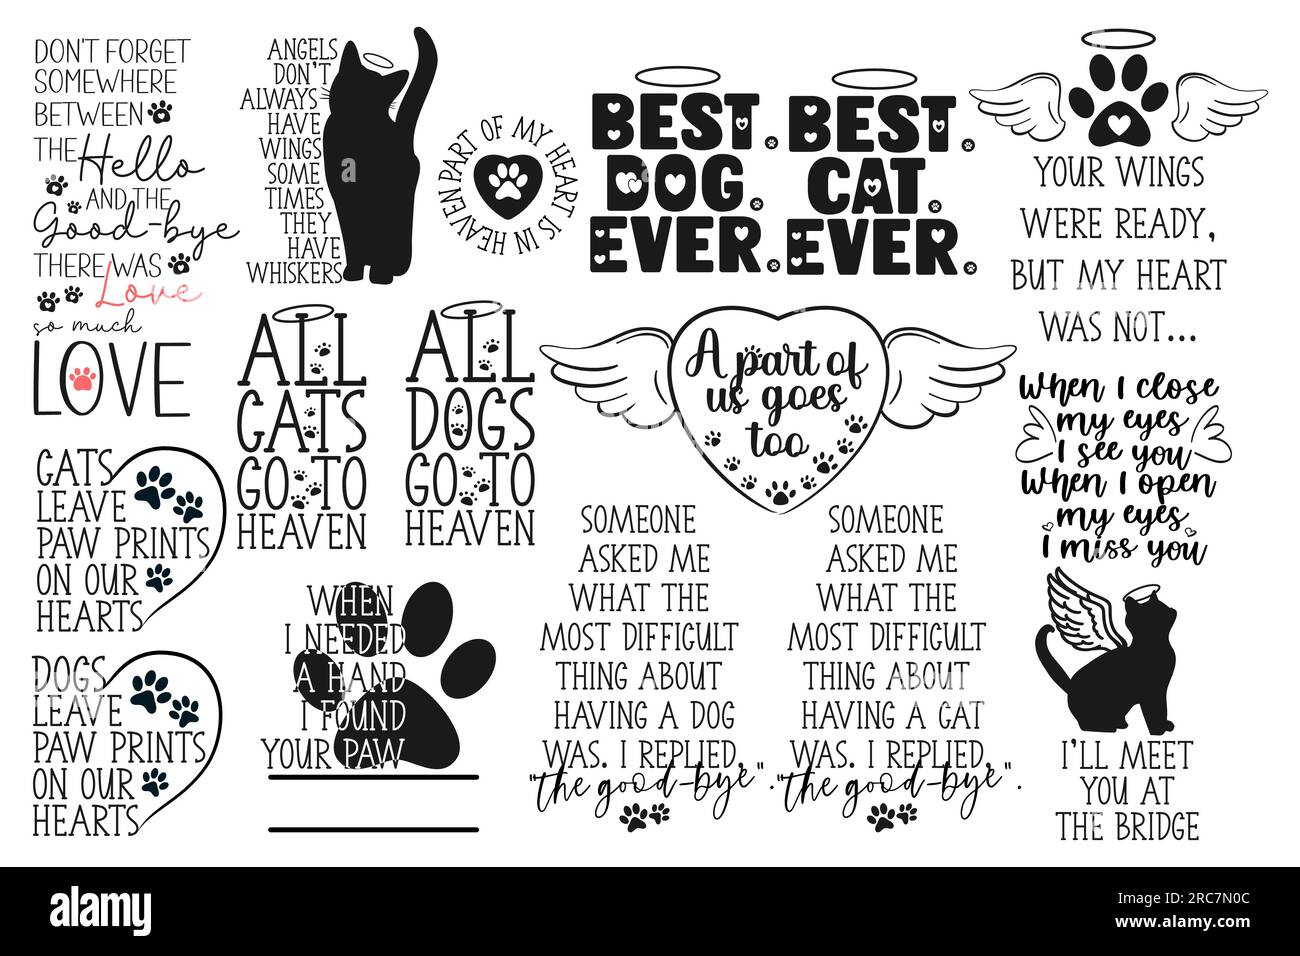 DON'T FORGET
SOMEWHERE
BETWEEN
THE Hello
AND THE
Good-bye
THERE WAS
Love
so much
LOVE
ANGELS
DON'T
ALWAYS
HAVE
WINGS
SOME
TIMES
THEY
HAVE
WHISKERS
PART OF MY HEART IS IN HEAVEN
BEST.
DOG.
EVER.
BEST.
CAT.
EVER.
YOUR WINGS
WERE READY,
BUT MY HEART
WAS NOT...
CATS
LEAVE
PAW PRINTS
ON OUR
HEARTS
ALL
CATS
GO TO
HEAVEN
ALL
DOGS
GO TO
HEAVEN
A part of
us goes
too
When I close
my eyes
I see you
When I open
my eyes
I miss you
DOGS
LEAVE
PAW PRINTS
ON OUR
HEARTS
WHEN
I NEEDED
A HAND
I FOUND
YOUR PAW
SOMEONE
ASKED ME
WHAT THE
MOST DIFFICULT
THING ABOUT
HAVING A DOG
WAS. I REPLIED,
"the good-bye".
SOMEONE
ASKED ME
WHAT THE
MOST DIFFICULT
THING ABOUT
HAVING A CAT
WAS. I REPLIED,
"the good-bye".
I'LL MEET
YOU AT
THE BRIDGE
alamy
Image ID: 2RC7N0C
www.alamy.com